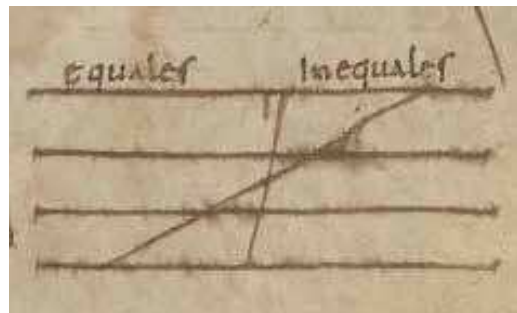 equales Inequales